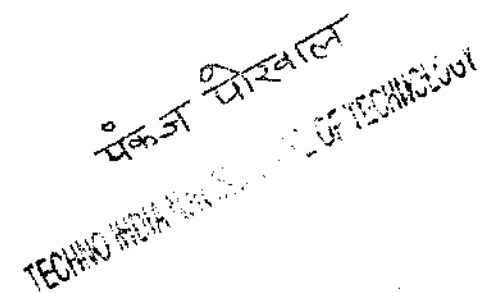 पंकज पोरवाल
TECHNO INDIA OF TECHNOLOGY